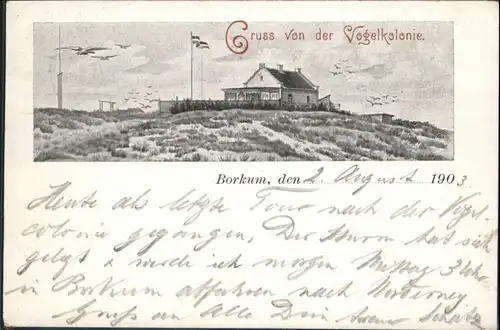 Gruss von der Vogelkolonie.
Borkum, den 2. August 1903.
Heute als letzte Tour nach der Vogel-
colonie gegangen, Der Sturm hat sich
gelegt & werde ich morgen Mittag 3 Uhr
in Borkum abfahren nach Norderney
Gruss an Alle Dein Schatz